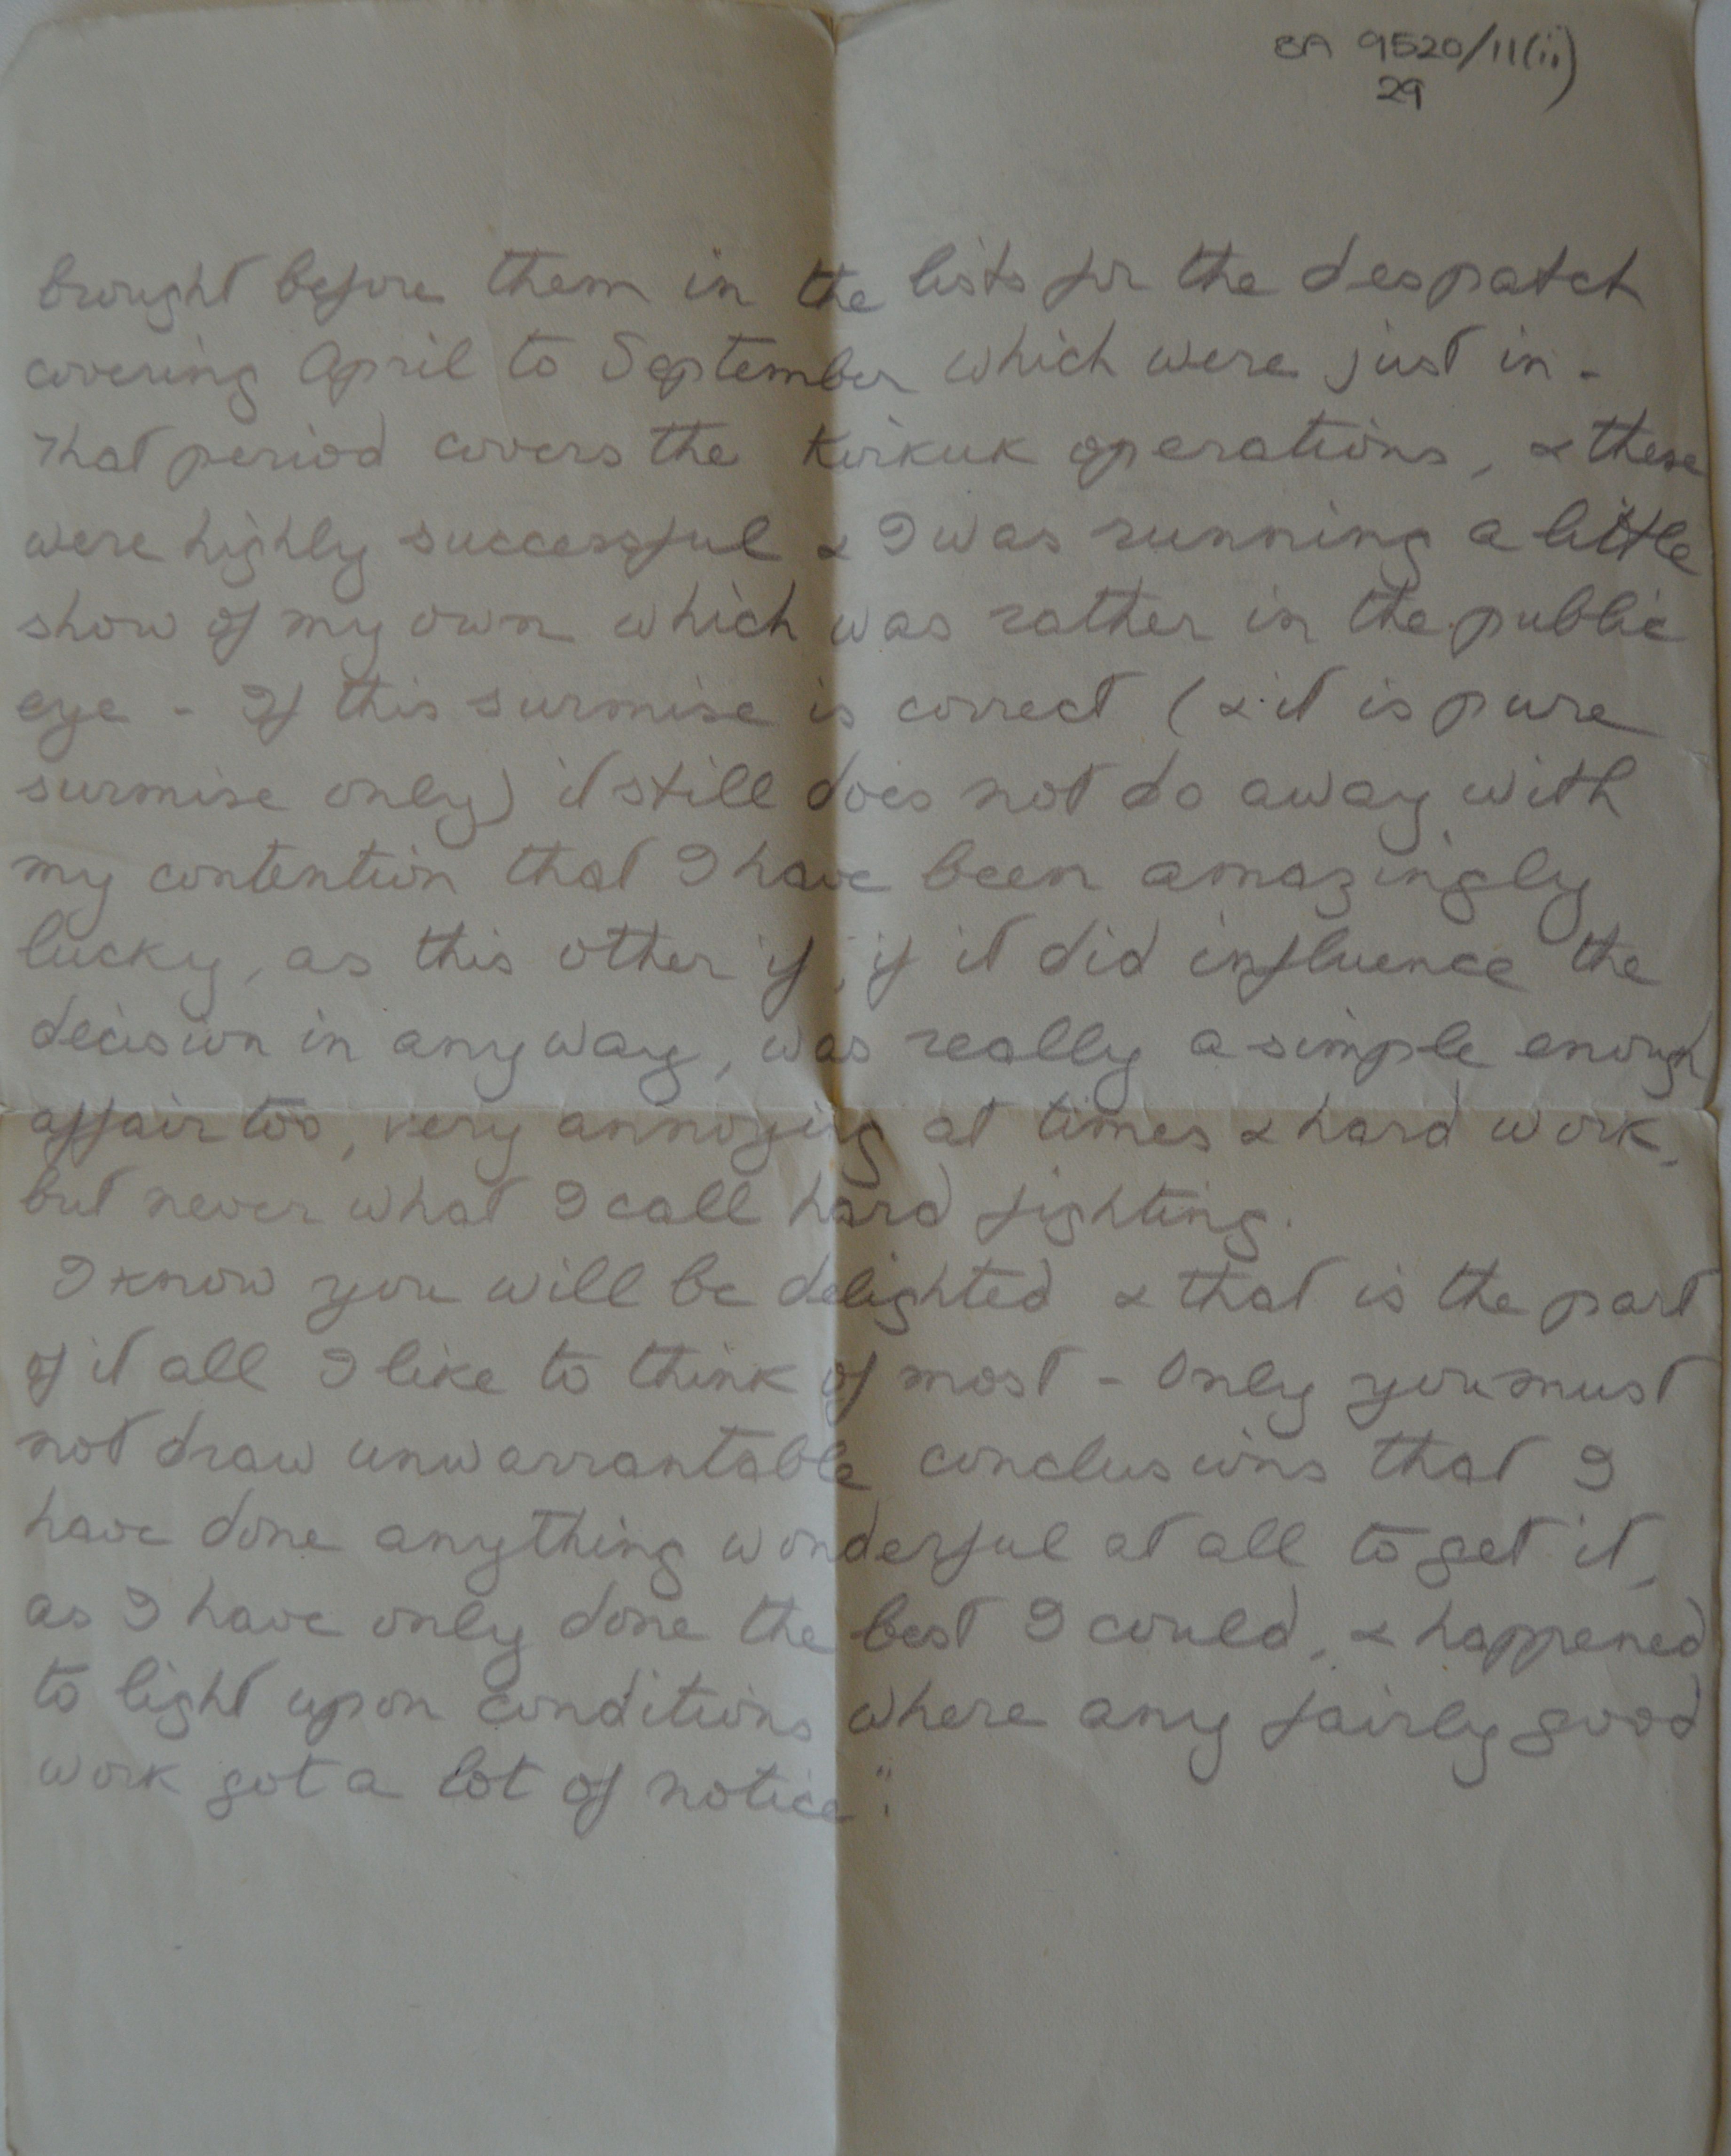 BA 9520/11(ii)
29
brought before them in the lists for the despatch
covering April to September which were just in -
That period covers the Kirkuk operations, & these
were highly successful & I was running a little
show of my own which was rather in the public
eye - If this surmise is correct (& it is pure
surmise only) it still does not do away with
my contention that I have been amazingly
lucky, as this other if, if it did influence the
decision in anyway, was really a simple enough
affair too, very annoying at times & hard work,
but never what I call hard fighting.
I know you will be delighted & that is the part
of it all I like to think of most - Only you must
not draw unwarrantable conclusions that I
have done anything wonderful at all to get it,
as I have only done the best I could, & happened
to light upon conditions where any fairly good
work got a lot of notice".